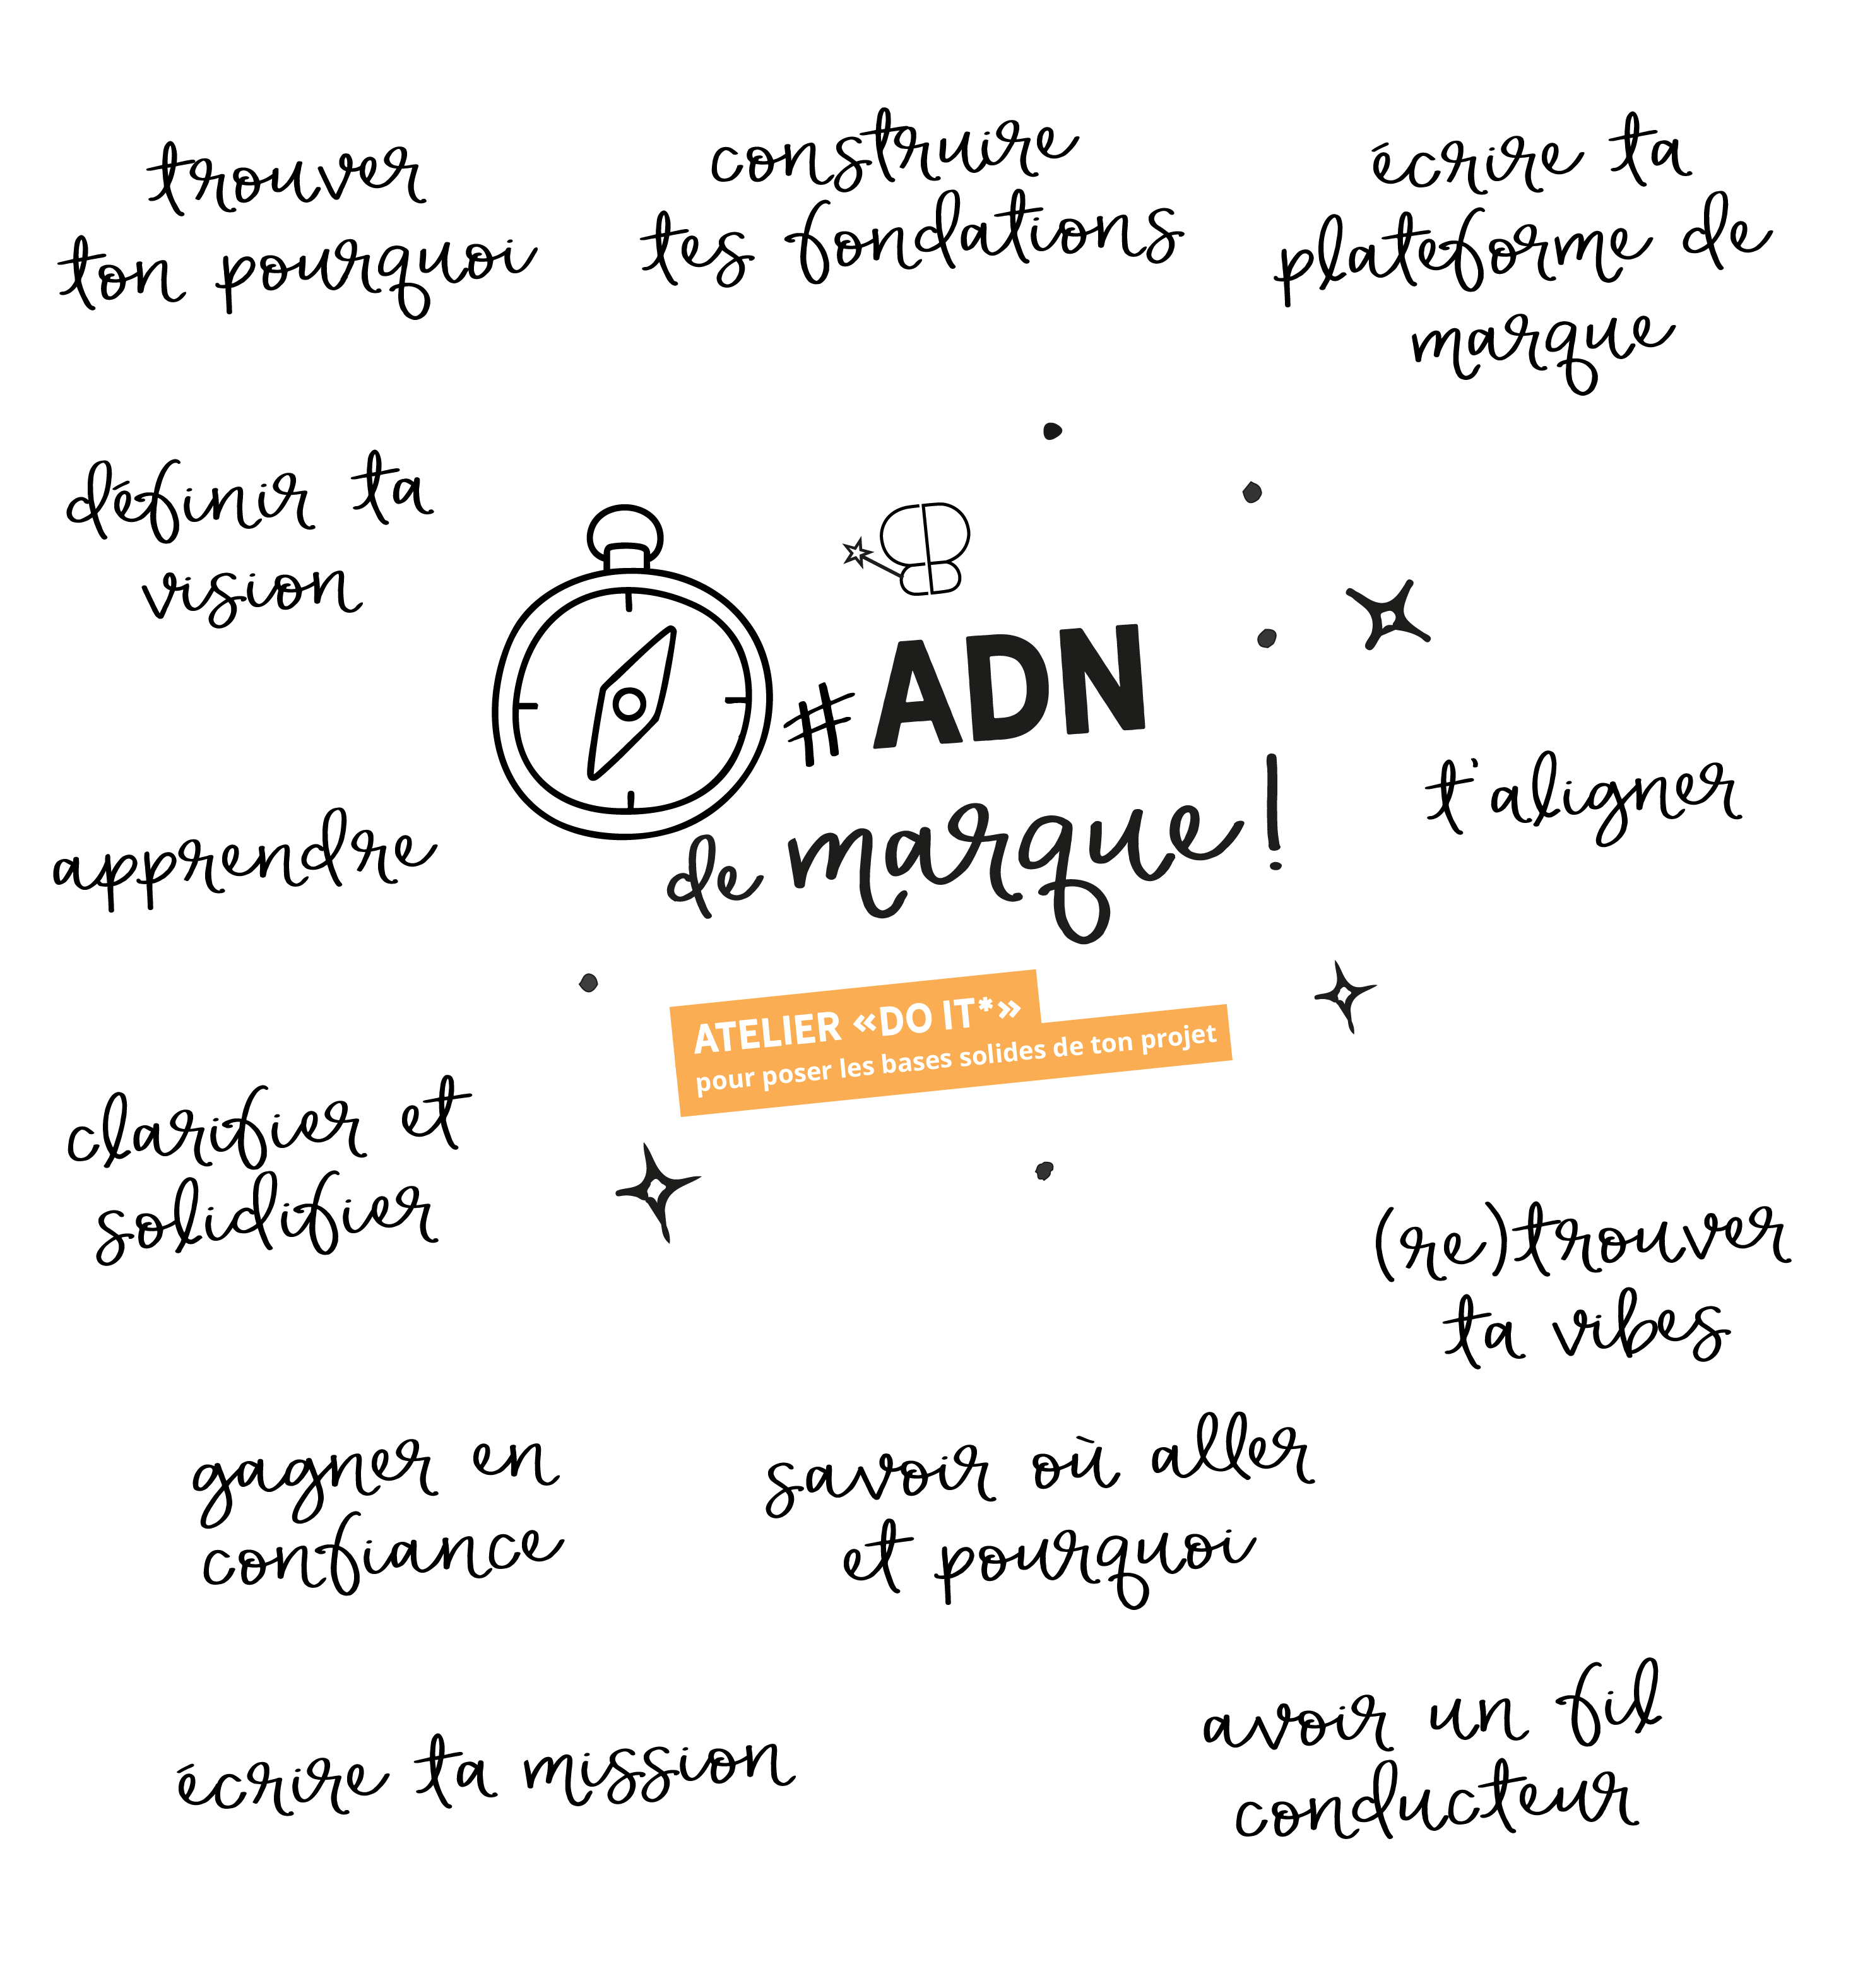 trouver
ton pourquoi
construire
tes fondations
écrire ta
plateforme de
marque
définir ta
vision
#ADN
de marque!
apprendre
t'aligner
ATELIER «DO IT*»
pour poser les bases solides de ton projet
clarifier et
solidifier
(re)trouver
ta vibes
gagner en
confiance
savoir où aller
et pourquoi
écrire ta mission
avoir un fil
conducteur